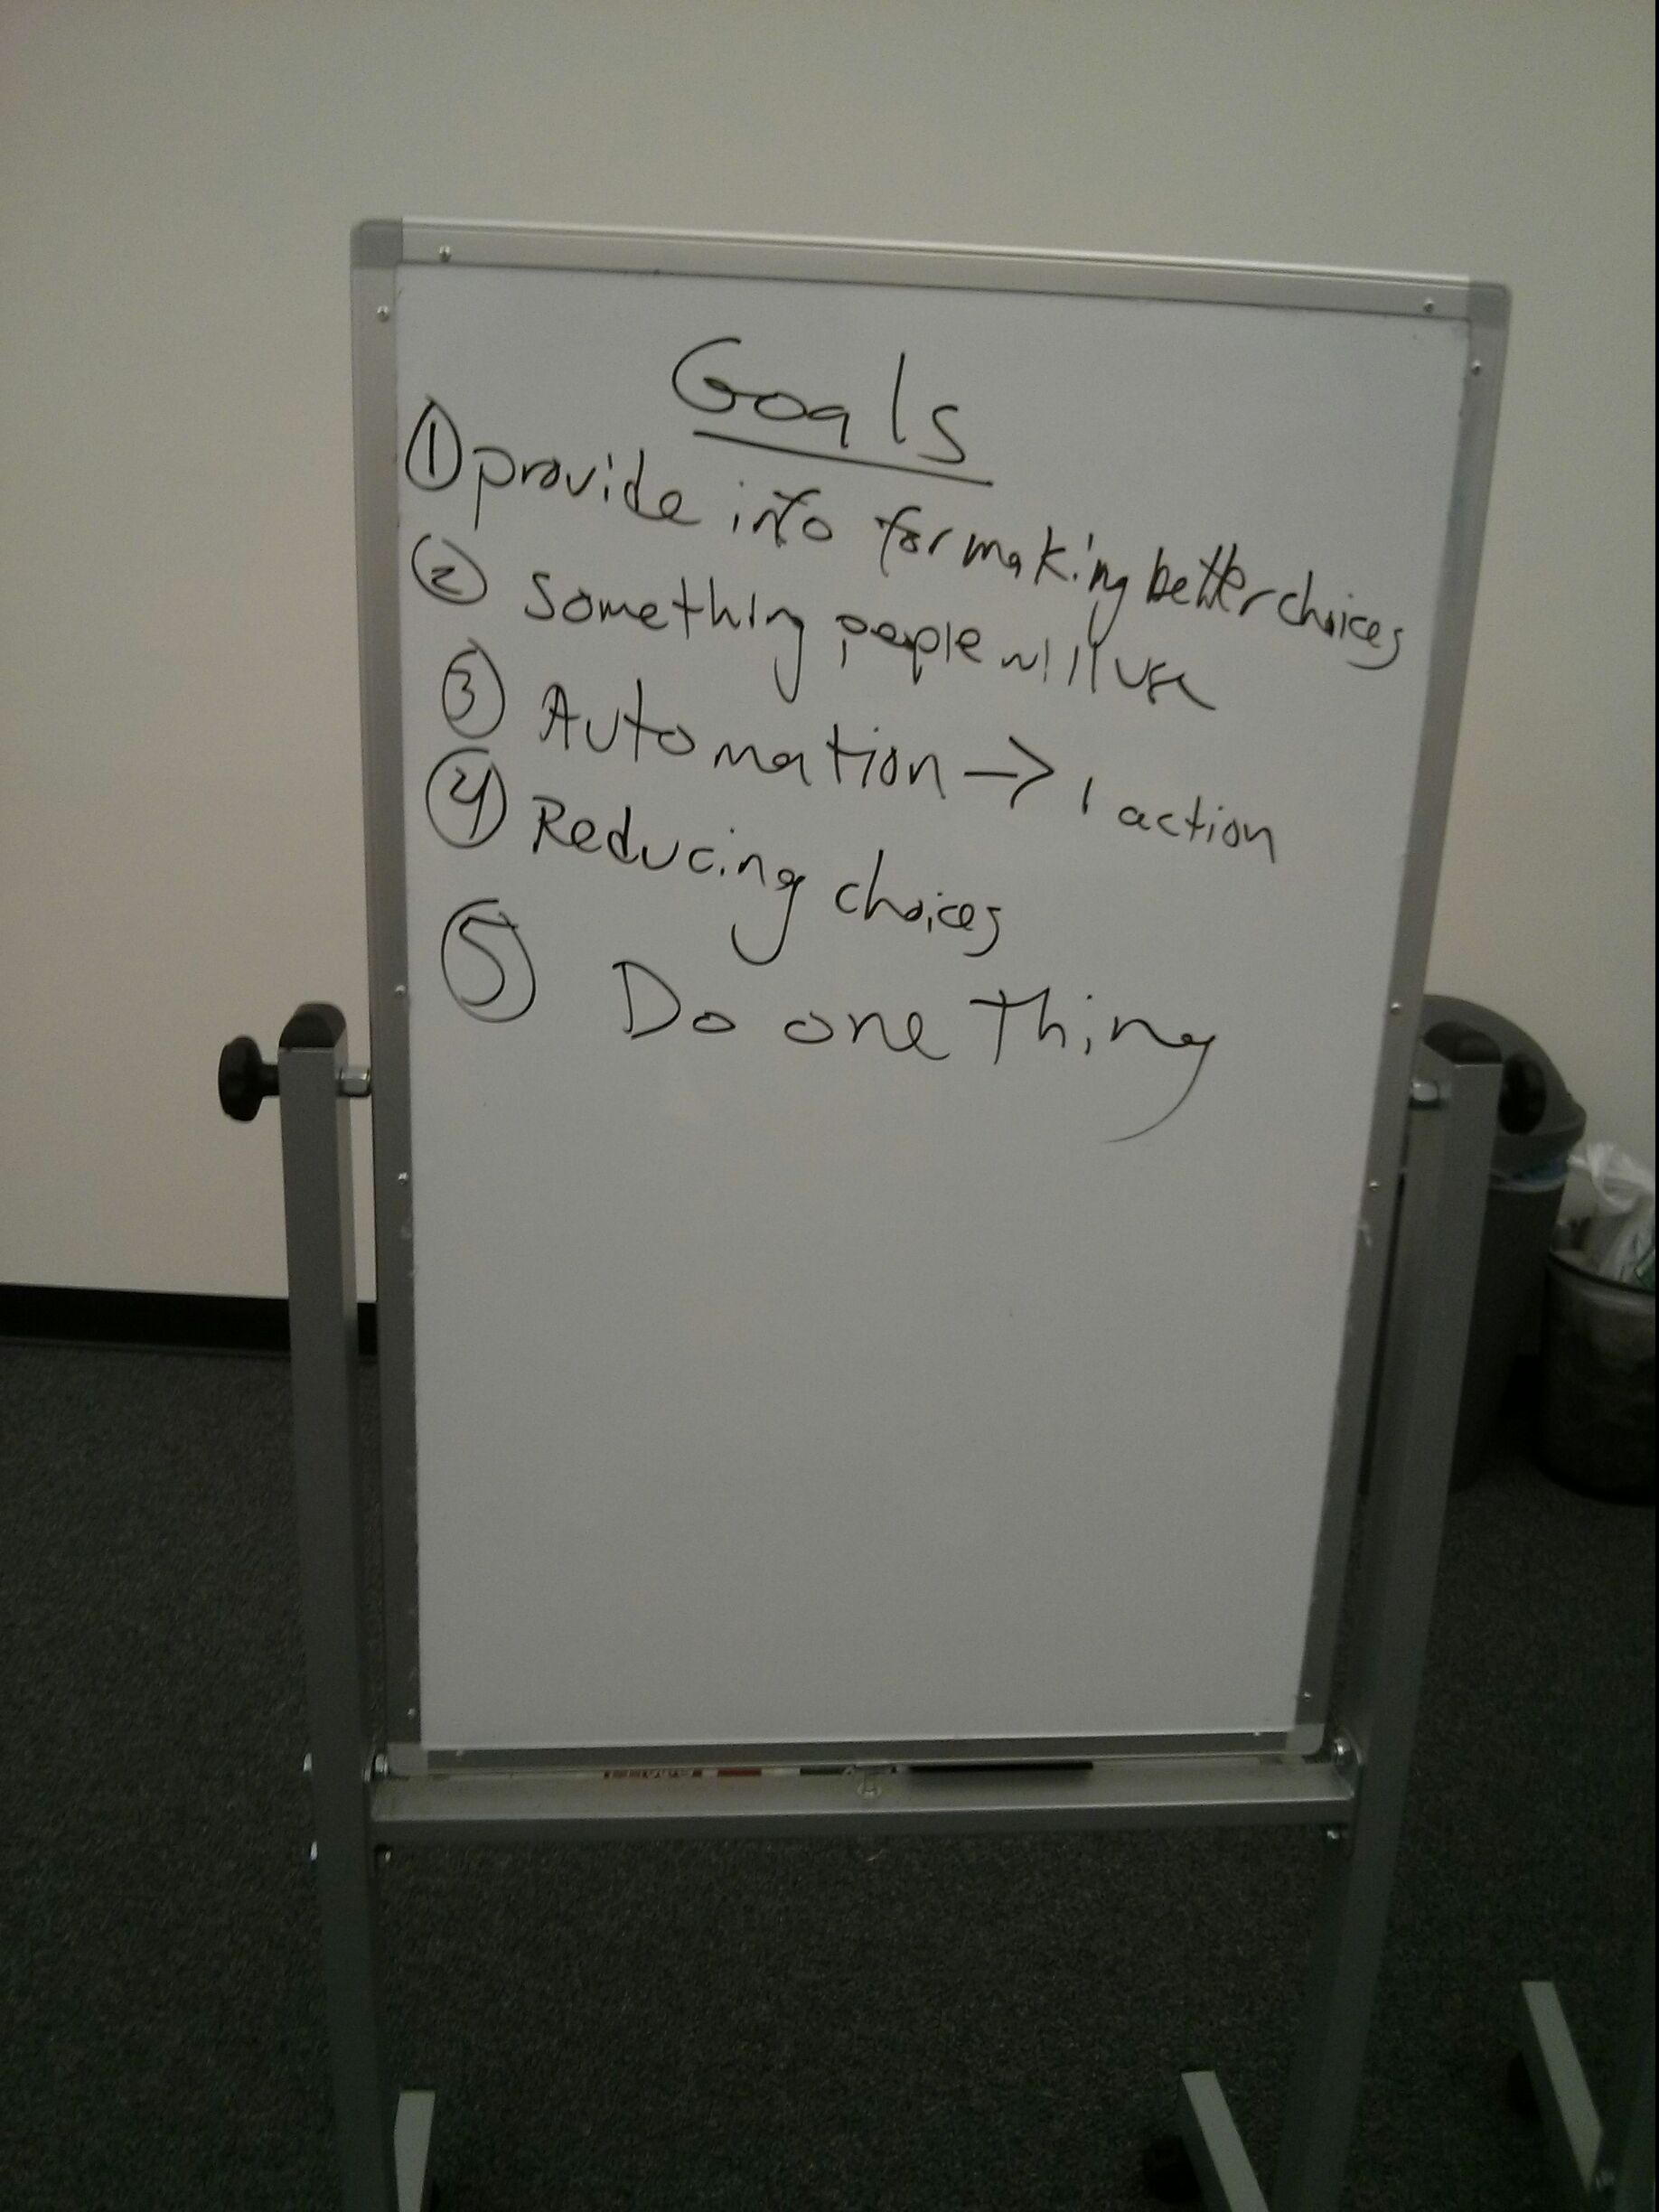 Goals
① provide info for making better choices
② Something people will use
③ Automation → 1 action
④ Reducing choices
⑤ Do one thing